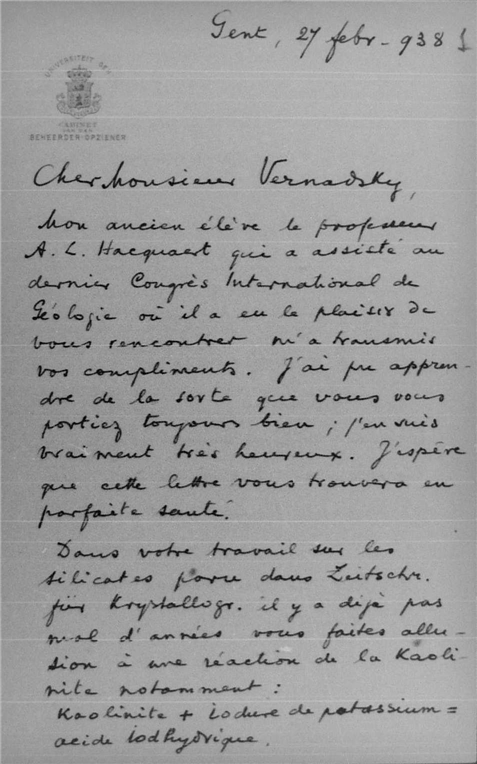 Gent, 27 febr - 938
UNIVERSITEIT GENT
CABINET
VAN DEN
BEHEERDER-OPZIENER
Cher Monsieur Vernadsky,
Mon ancien élève le professeur
A. L. Hacquaert qui a assisté au
dernier Congrès International de
Géologie où il a eu le plaisir de
vous rencontrer m'a transmis
vos compliments. J'ai pu appren-
dre de la sorte que vous vous
portiez toujours bien ; j'en suis
vraiment très heureux. J'espère
que cette lettre vous trouvera en
parfaite santé.
Dans votre travail sur les
silicates paru dans Zeitschr.
für Krystallogr. il y a déjà pas
mal d'années vous faites allu-
sion à une réaction de la Kaoli-
nite notamment :
Kaolinite + iodure de potassium =
acide iodhydrique.